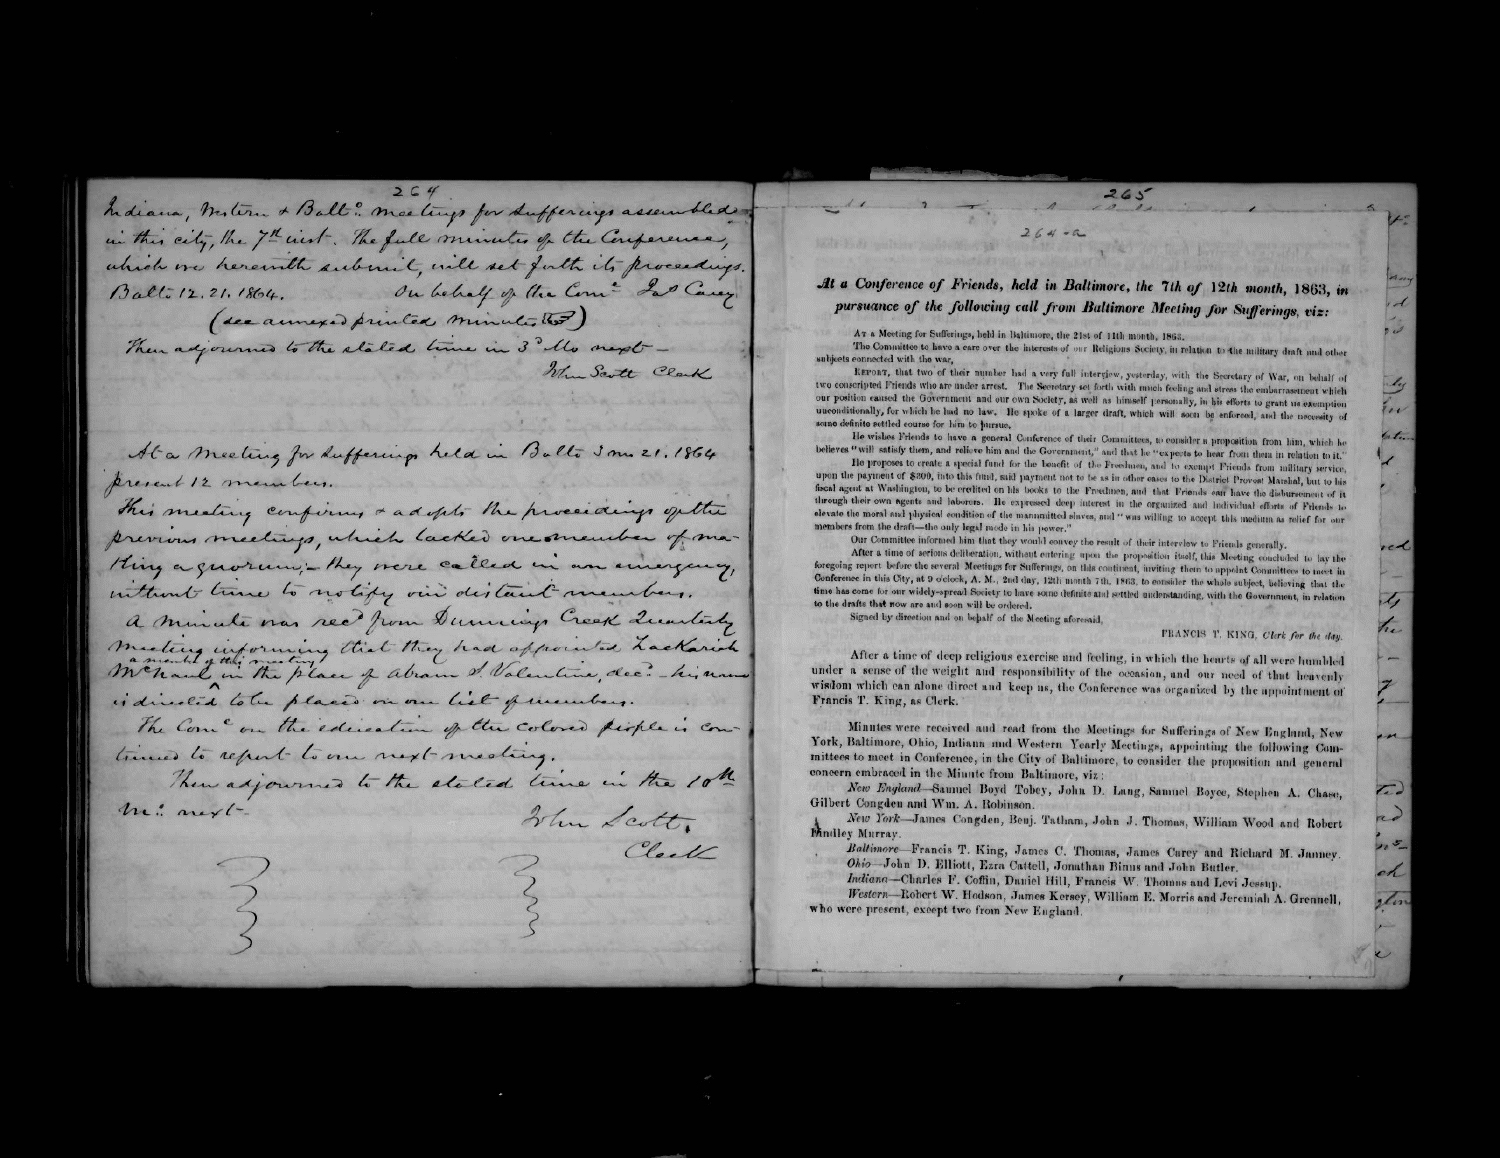 264
Indiana, Western & Balto. meetings for sufferings assembled
in this city, the 7th inst. The full minutes of the Conference,
which we herewith submit, will set forth its proceedings.
Balto 12.21.1864. On behalf of the Come Jas Carey
(see annexed printed minutes)
Then adjourned to the stated time in 3d Mo next—
John Scott Clerk
At a Meeting for Sufferings held in Balto 3 mo 21. 1864
present 12 members.
This meeting confirms & adopts the proceedings of the
previous meetings, which lacked one member of ma-
king a quorum;— they were called in an emergency,
without time to notify our distant members.
A minute was recd from Dunnings Creek Quarterly
meeting informing that they had appointed Zackariah
a member of this meeting
in the place of Abram S Valentine, decd.— his name
is directed to be placed on our list of members.
The Come on the education of the colored people is con-
tinued to report to our next meeting.
Then adjourned to the stated time in the 10th
Mo: next-
John Scott.
Clerk
265
264-a
At a Conference of Friends, held in Baltimore, the 7th of 12th month, 1863, in
pursuance of the following call from Baltimore Meeting for Sufferings, viz:
At a Meeting for Sufferings, held in Baltimore, the 21st of 11th month, 1863.
The Committee to have a care over the interests of our Religious Society, in relation to the military draft and other
subjects connected with the war,
Report, that two of their number had a very full interview, yesterday, with the Secretary of War, on behalf of
two conscripted Friends who are under arrest. The Secretary set forth with much feeling and stress the embarrassment which
our position caused the Government and our own Society, as well as himself personally, in his efforts to grant us exemption
unconditionally, for which he had no law. He spoke of a larger draft, which will soon be enforced, and the necessity of
some definite settled course for him to pursue.
He wishes Friends to have a general Conference of their Committees, to consider a proposition from him, which he
believes "will satisfy them, and relieve him and the Government," and that he "expects to hear from them in relation to it."
He proposes to create a special fund for the benefit of the Freedmen, and to exempt Friends from military service,
upon the payment of $300, into this fund, said payment not to be as in other cases to the District Provost Marshal, but to his
fiscal agent at Washington, to be credited on his books to the Freedmen, and that Friends can have the disbursement of it
through their own agents and laborers. He expressed deep interest in the organized and individual efforts of Friends to
elevate the moral and physical condition of the manumitted slaves, and "was willing to accept this medium as relief for our
members from the draft—the only legal mode in his power."
Our Committee informed him that they would convey the result of their interview to Friends generally.
After a time of serious deliberation, without entering upon the proposition itself, this Meeting concluded to lay the
foregoing report before the several Meetings for Sufferings, on this continent, inviting them to appoint Committees to meet in
Conference in this City, at 9 o'clock, A. M., 2nd day, 12th month 7th, 1863, to consider the whole subject, believing that the
time has come for our widely-spread Society to have some definite and settled understanding, with the Government, in relation
to the drafts that now are and soon will be ordered.
Signed by direction and on behalf of the Meeting aforesaid,
FRANCIS T. KING, Clerk for the day.
After a time of deep religious exercise and feeling, in which the hearts of all were humbled
under a sense of the weight and responsibility of the occasion, and our need of that heavenly
wisdom which can alone direct and keep us, the Conference was organized by the appointment of
Francis T. King, as Clerk.
Minutes were received and read from the Meetings for Sufferings of New England, New
York, Baltimore, Ohio, Indiana and Western Yearly Meetings, appointing the following Com-
mittees to meet in Conference, in the City of Baltimore, to consider the proposition and general
concern embraced in the Minute from Baltimore, viz:
New England—Samuel Boyd Tobey, John D. Lang, Samuel Boyce, Stephen A. Chase,
Gilbert Congdon and Wm. A. Robinson.
New York—James Congden, Benj. Tatham, John J. Thomas, William Wood and Robert
Lindley Murray.
Baltimore—Francis T. King, James C. Thomas, James Carey and Richard M. Janney.
Ohio—John D. Elliott, Ezra Cattell, Jonathan Binns and John Butler.
Indiana—Charles F. Coffin, Daniel Hill, Francis W. Thomas and Levi Jessup.
Western—Robert W. Hodson, James Kersey, William E. Morris and Jeremiah A. Grennell,
who were present, except two from New England.